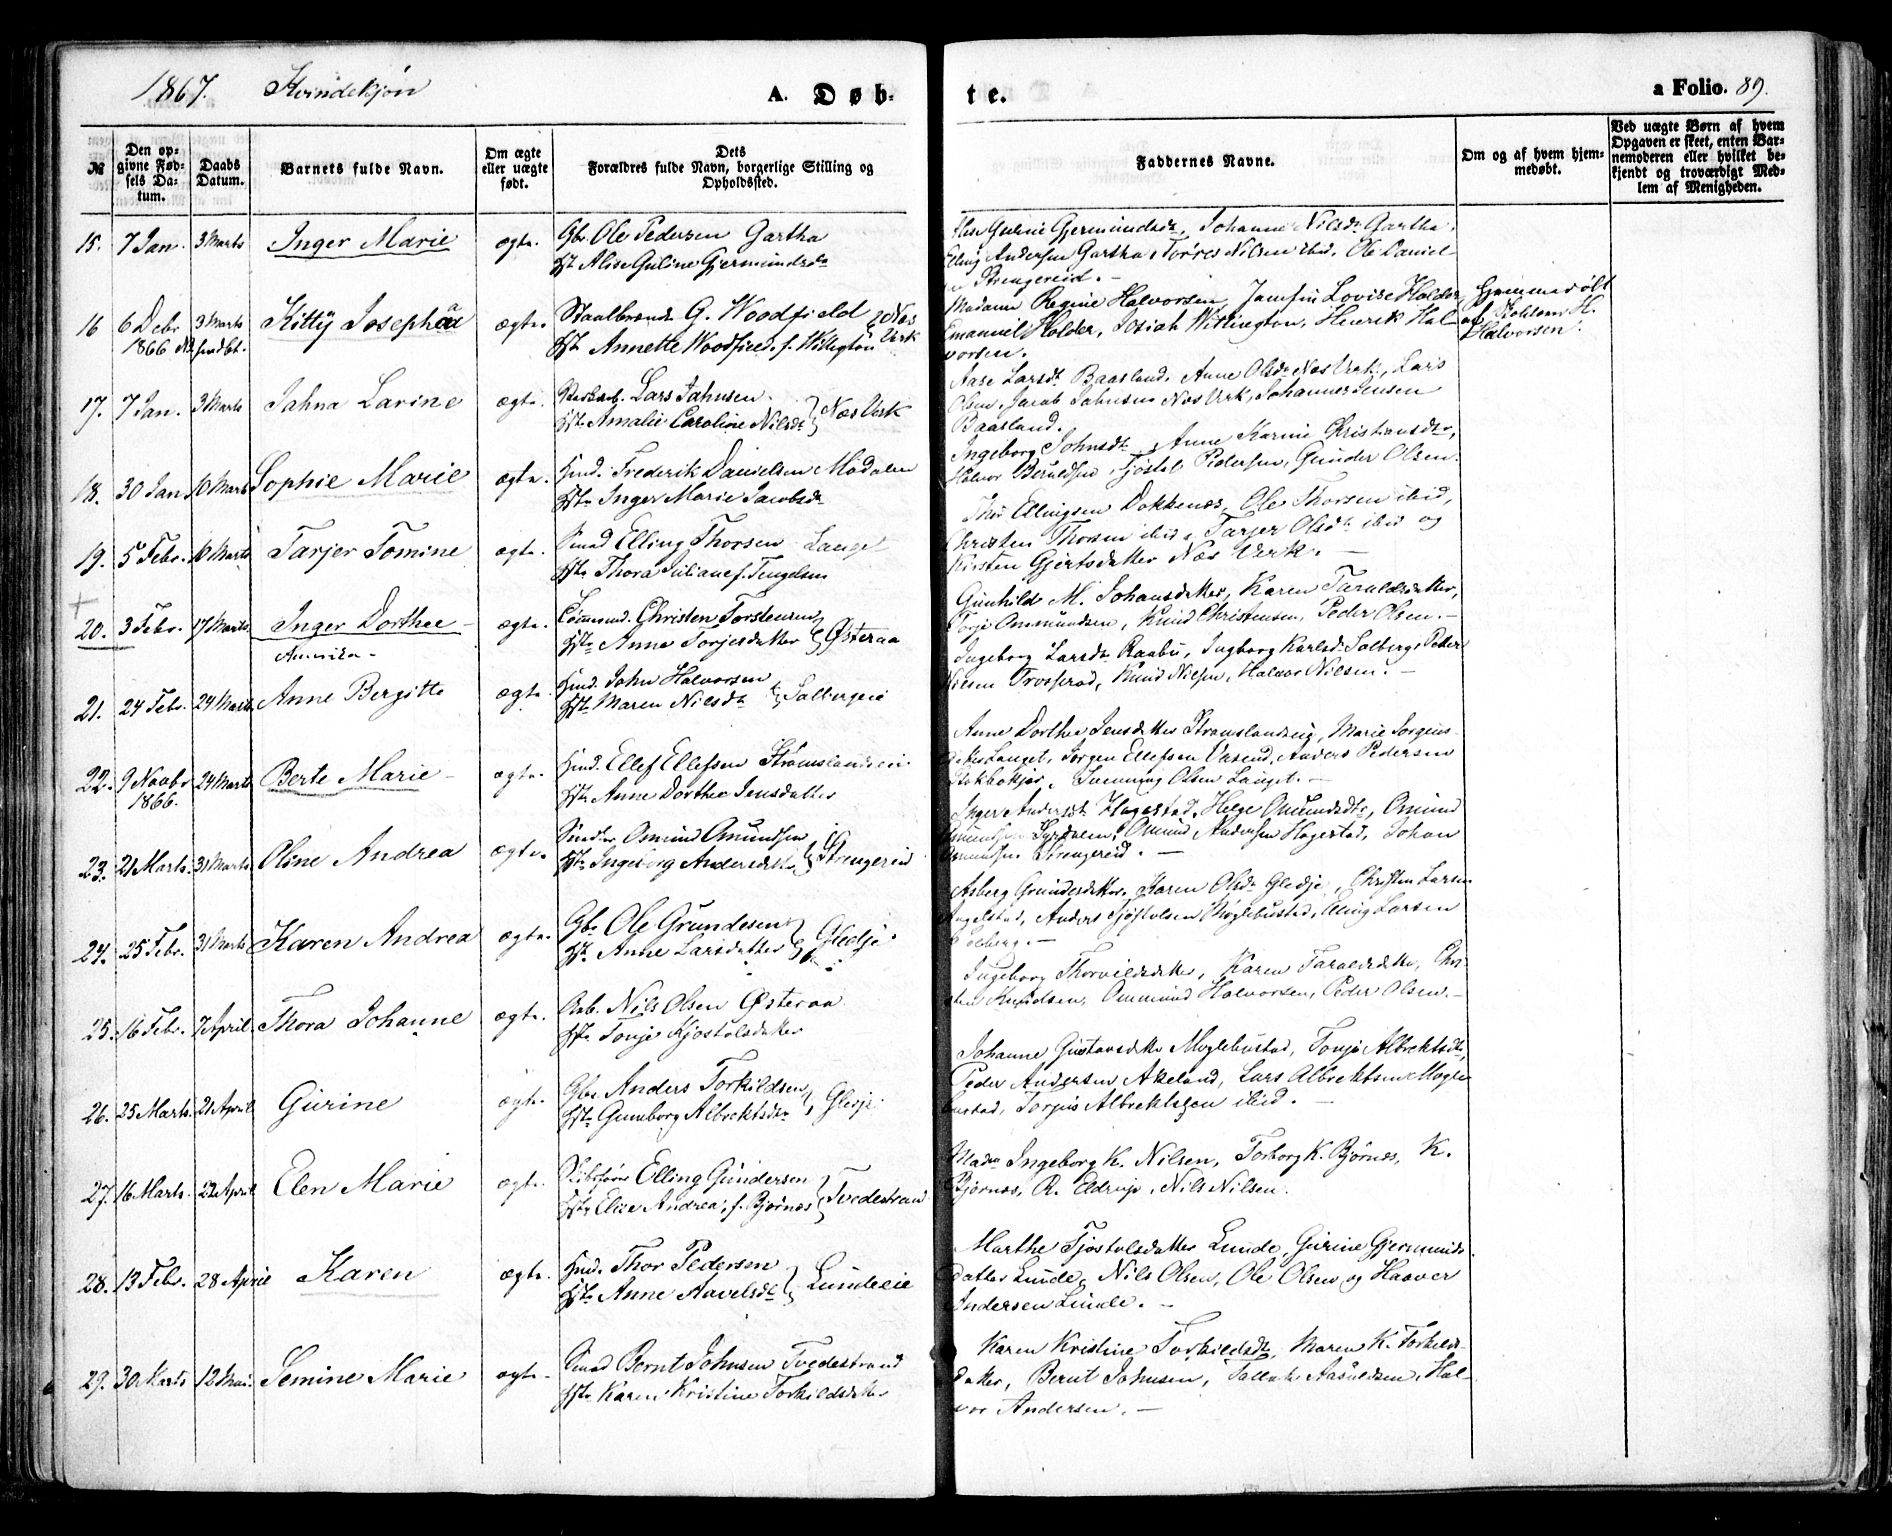 1867. Kvindekjøn
A. Døb-
te.
a Folio. 89.
№
Den op-
givne Fød-
sels Da-
tum.
Daabs
Datum.
Barnets fulde Navn.
Om ægte
eller uægte
født.
Dets
Forældres fulde Navn, borgerlige Stilling og
Opholdssted.
Faddernes Navne.
Om og af hvem hjem-
medøbt.
Ved uægte Børn af hvem
Opgaven er skeet, enten Bar-
nemoderen eller hvilket be-
kjendt og troværdigt Med-
lem af Menigheden.
15. 7 Jan. 3 Marts Inger Marie ægte. Gbr. Ole Pedersen Gartha
Hst Alise Guline Gjermundsdr
Guline Gjermundsdr, Johanne Nilsdr Gartha.
Elling Andersen Gartha, Torres Nilsen ibid, Ole Daniel-
Strengereid.
16 6 Debr 3 Marts Kitty Josepha ægte. Staalbrænder G. Woodfield Næs
1866 Hst Annette Woodfield f. Willigton Værk
Madame Regine Halvorsen, Lovise Holder,
Emanuel Holder, Josiah Wittington, Henrik Hal-
vorsen.
Hjemmedøbt
af H.
Halvorsen.
17. 7 Jan. 3 Marts Jahna Larine ægte. Lars Jahnsen
Hst Amalie Caroline Nilsdr Næs Værk
Aase Larsdr Baasland, Anne Olsdr Næs Værk, Lars
Olsen, Jacob Jahnsen Næs Værk, Johannes Jensen
Baasland.
18. 30 Jan. 10 Marts Sophie Marie ægte. Hmd. Frederik Danielsen Mødalen
Hst Inger Marie Jacobsdr
Ingeborg Johnsdr, Anne Karine Christiansdr,
Halvor Berulfsen, Tjøstel Pedersen, Gunder Olsen.
19. 5 Febr. 10 Marts Tarjer Tomine ægte. Smed Elling Thorsen Lauget
Hst Thora Juliane f. Tengelsen
Thor Ellingsen Dokkenæs, Ole Thorsen ibid,
Christen Thorsen ibid, Tarjer Olsdr ibid og
Kirsten Gjertsdatter Næs Værk.
20. 3 Febr. 17 Marts Inger Dorthee ægte. Christen Torstensen
Amerika Hst Anne Torjesdatter Østeraa
Gunhild M. Johansdatter, Karen Taraldsdatter,
Torje Ommundsen, Knud Christensen, Peder Olsen.
21. 24 Febr. 24 Marts Anne Bergitte ægte. Hmd. John Halvorsen
Hst Maren Nilsdr Solbergeie
Ingeborg Larsdr Raabu, Ingborg Karlsd Solberg, Peder
Nilsen Trosserød, Knud Nilsen, Halvor Nilsen.
22. 9 Novbr 24 Marts Berte Marie ægte. Hmd. Ellef Ellefsen Strømslandseie
1866. Hst Anne Dorthea Jensdatter
Anne Dorthea Jensdatter Strømslandseie, Marie Jorgens-
datter Lauget, Jørgen Ellefsen Vasend, Anders Pedersen
Svenning Olsen Lauget.
23. 21 Marts. 31 Marts Oline Andrea ægte. Osmund Omundsen
Hst Ingeborg Andersdatter Strengereid
Inger Andersdr Hagestad, Helge Omundsdr, Omund
Omundsen Omund Andersen Hagestad, Johan
Omundsen Strengereid.
24. 25 Febr. 31 Marts Karen Andrea ægte. Gbr Ole Grundesen
Hst Anne Larsdatter Gledje
Asberg Grundesdatter, Karen Olsdr Gledje, Christen Larsen
Angelstad, Anders Tjøstolsen Møglebustad, Elling Larsen
25. 16 Febr. 7 April Thora Johanne ægte. Arb. Nils Olsen Østeraa
Hst Tonje Kjostolsdatter
Ingeborg Thorvildsdatter, Karen Taraldsdatter, Chri-
sten Knudsen, Ommund Halvorsen, Peder Olsen.
26. 25 Marts. 21 April Gurine ægte. Gbr. Anders Torkildsen
Hst Gunborg Albrektsdr Gledje
Johanne Gustavsdatter Møglebustad, Tonje Albrektsdr
Peder Andersen Akeland, Lars Albrektsen Mogle-
bustad, Torjus Albrektsen ibid.
27. 16 Marts. 22 April Elen Marie ægte. Skibsfører Elling Gundersen
Hst Elise Andrea f. Bjørnæs Tvedestrand
Mad. Ingeborg K. Nilsen, Torborg K. Bjørnæs, K.
Bjørnæs, R. Eldrup, Nils Nilsen.
28. 13 Febr. 28 April Karen ægte. Hmd. Thor Pedersen
Hst Anne Aavelsdr Lundeeie
Marthe Tjøstolsdatter Lunde, Gurine Gjermunds-
datter Lunde, Nils Olsen, Ole Olsen og Haaver
Andersen Lunde.
29. 30 Marts 12 Mai Semine Marie ægte. Smed Bernt Johnsen Tvedestrand
Hst Karen Kristine Torkildsdatter
Karen Kristine Torkildsdr, Maren K. Torkilds-
datter, Bernt Johnsen, Tallak Aasuldsen, Hal-
vor Andersen.